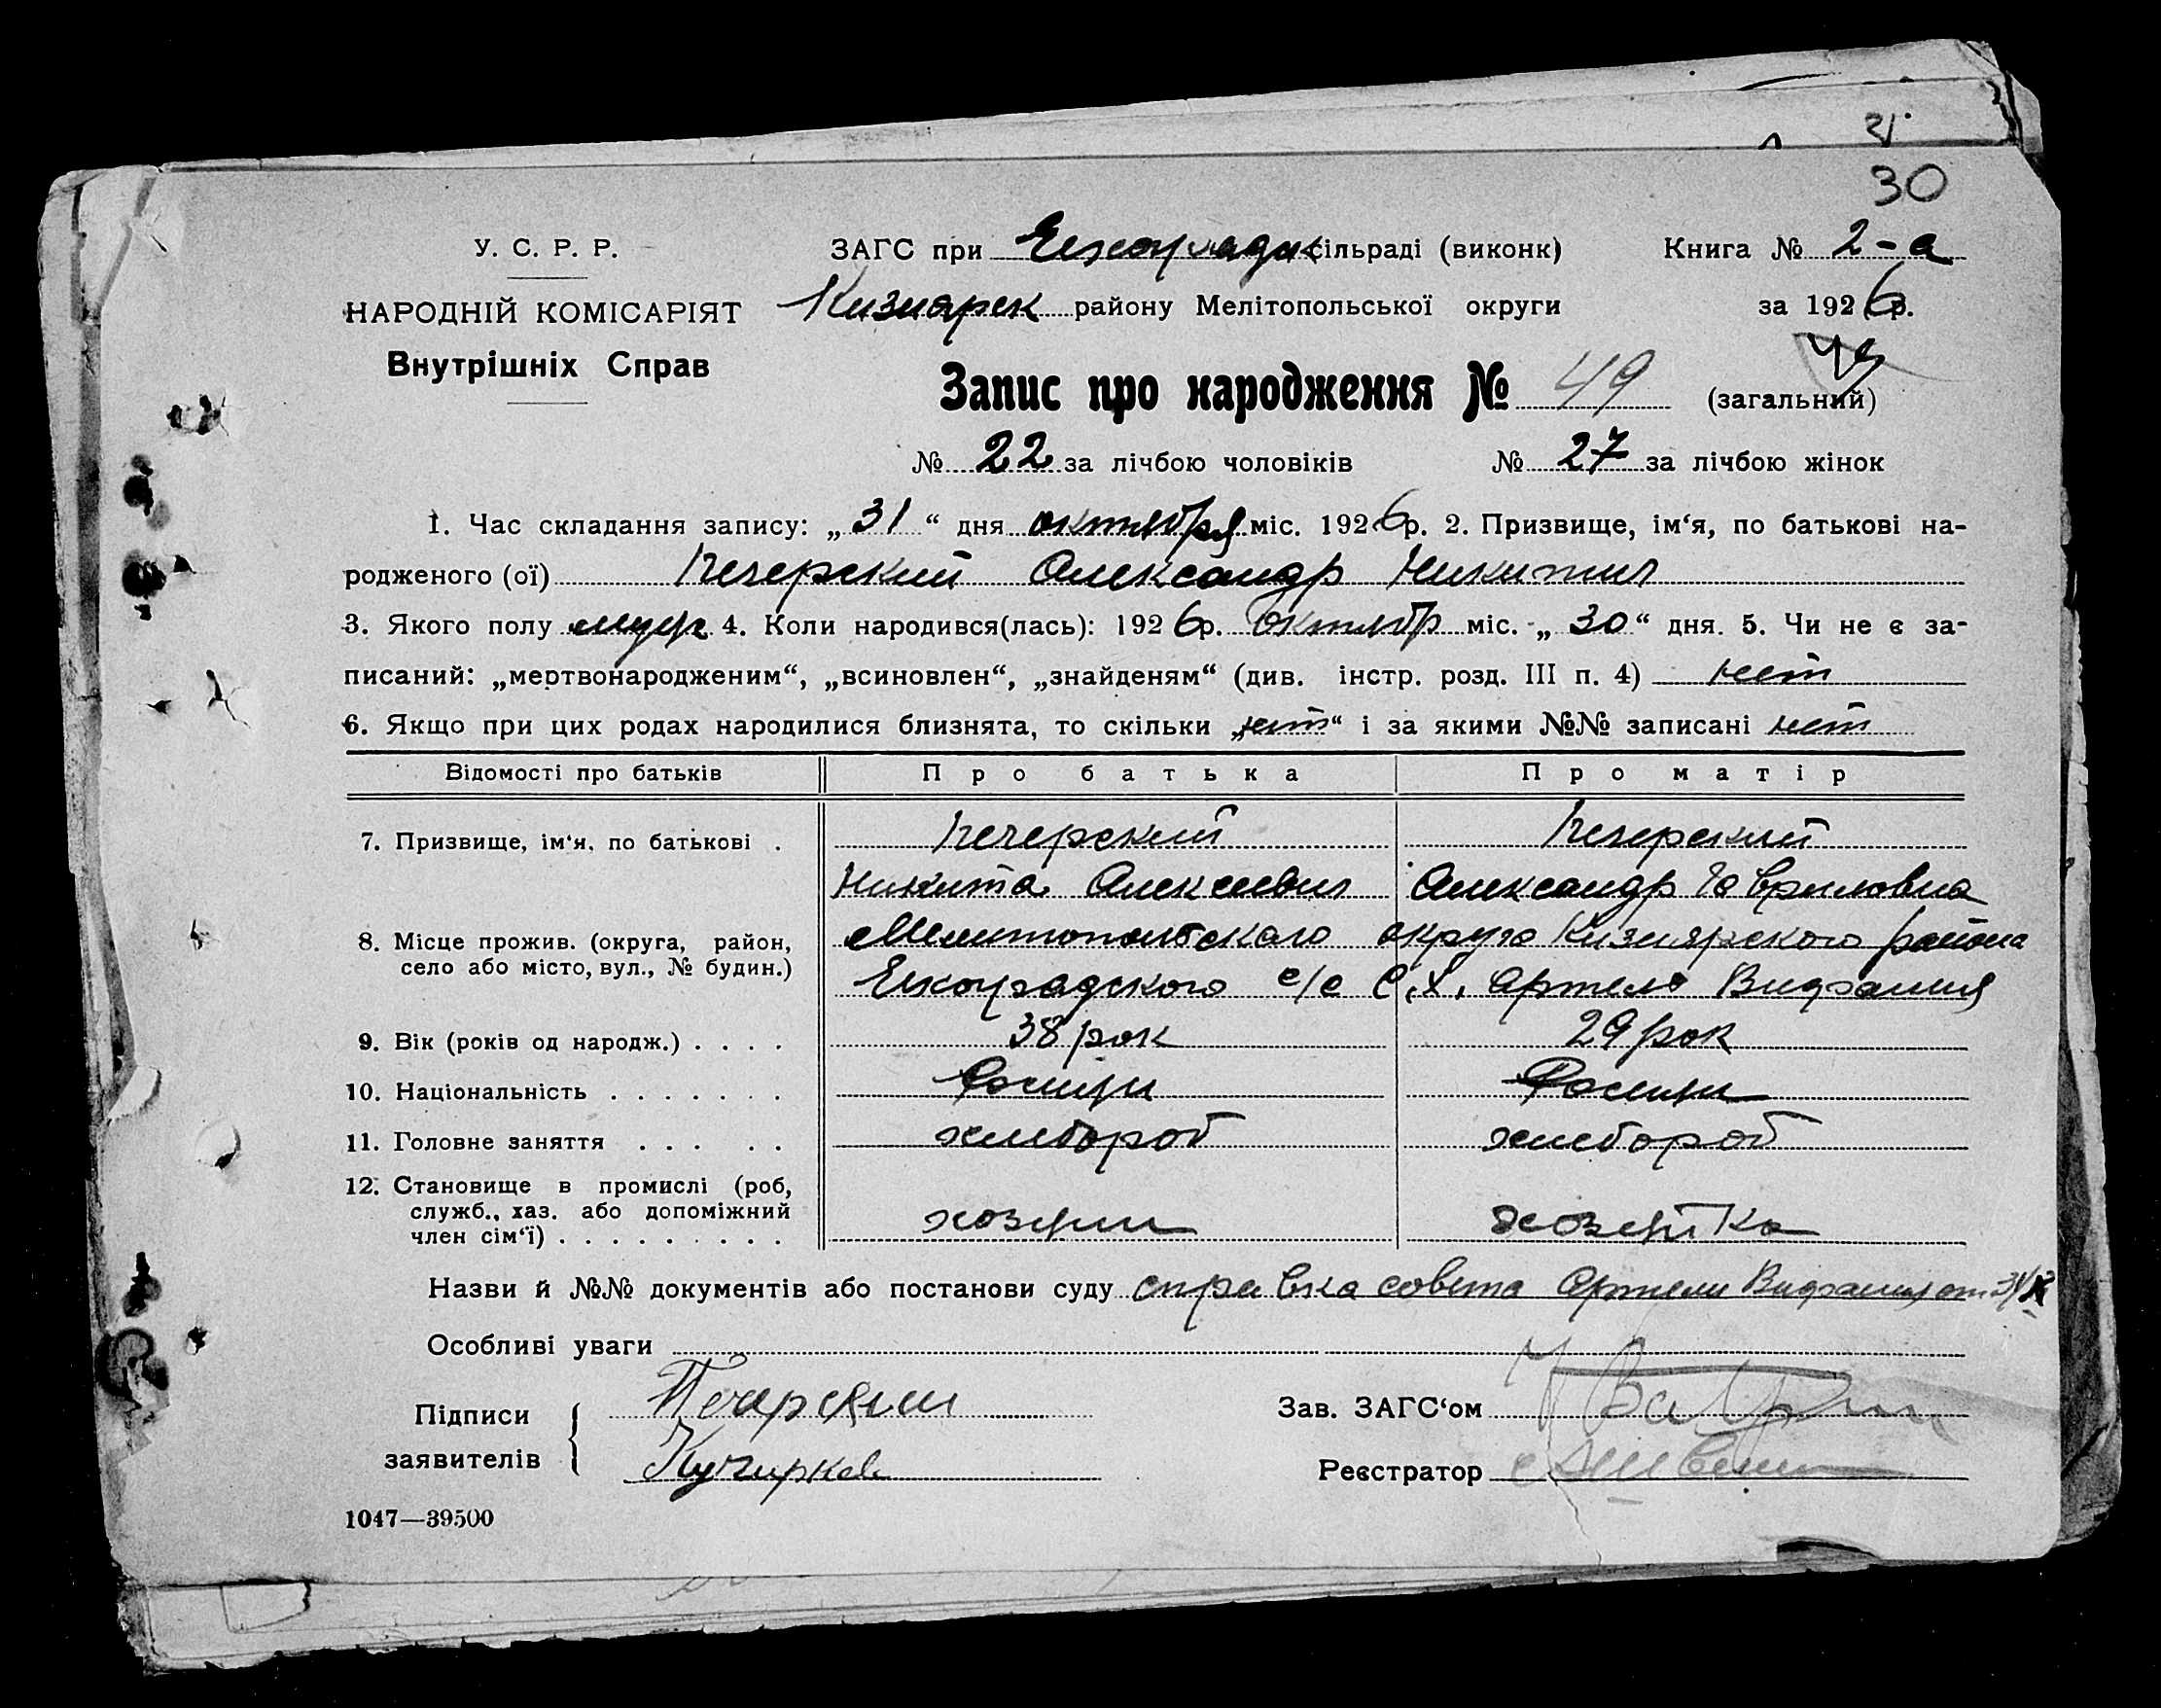 31
30
У. С. Р. Р.
ЗАГС при сільраді (виконк)
Книга № 2-а
НАРОДНІЙ КОМІСАРІЯТ
Кизиярск району Мелітопольської округи
за 1926 р.
Внутрішніх Справ
Запис про народження № 49 (загальний)
49
№ 22 за лічбою чоловіків № 27 за лічбою жінок
1. Час складання запису: „31“ дня октября міс. 1926 р. 2. Призвище, ім‘я, по батькові на-
родженого (ої) Печерский Александр Никитич
3. Якого полу муж 4. Коли народився(лась): 1926 р. октябр міс. „30“ дня. 5. Чи не є за-
писаний: „мертвонародженим“, „всиновлен“, „знайденям“ (див. інстр. розд. III п. 4) нет
6. Якщо при цих родах народилися близнята, то скільки „нет“ і за якими №№ записані нет
Відомості про батьків Про батька Про матір
7. Призвище, ім‘я, по батькові . Печерский Печерский
Никита Алексеевич Александр Гавриловна
8. Місце прожив. (округа, район, село або місто, вул., № будин.) Мелитопольского округа Кизиярского района
с/с С.Х. Артель
9. Вік (років од народж.) . . . . 38 рок 29 рок
10. Національність . . . . . . .
11. Головне заняття . . . . . хлебороб хлебороб
12. Становище в промислі (роб, служб., хаз. або допоміжний член сім‘ї) . . . . . . . . . хозяин хозяйка
Назви й №№ документів або постанови суду справка совета Артели от 31/X
Особливі уваги
Підписи заявителів
Печерский
Зав. ЗАГС‘ом
Реєстратор
1047—39500